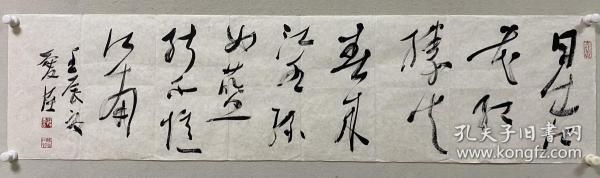 日出江
花红
胜火
春来
江水绿
如蓝
能不忆
江南
壬辰
孔夫子旧书网
www.kongfz.com